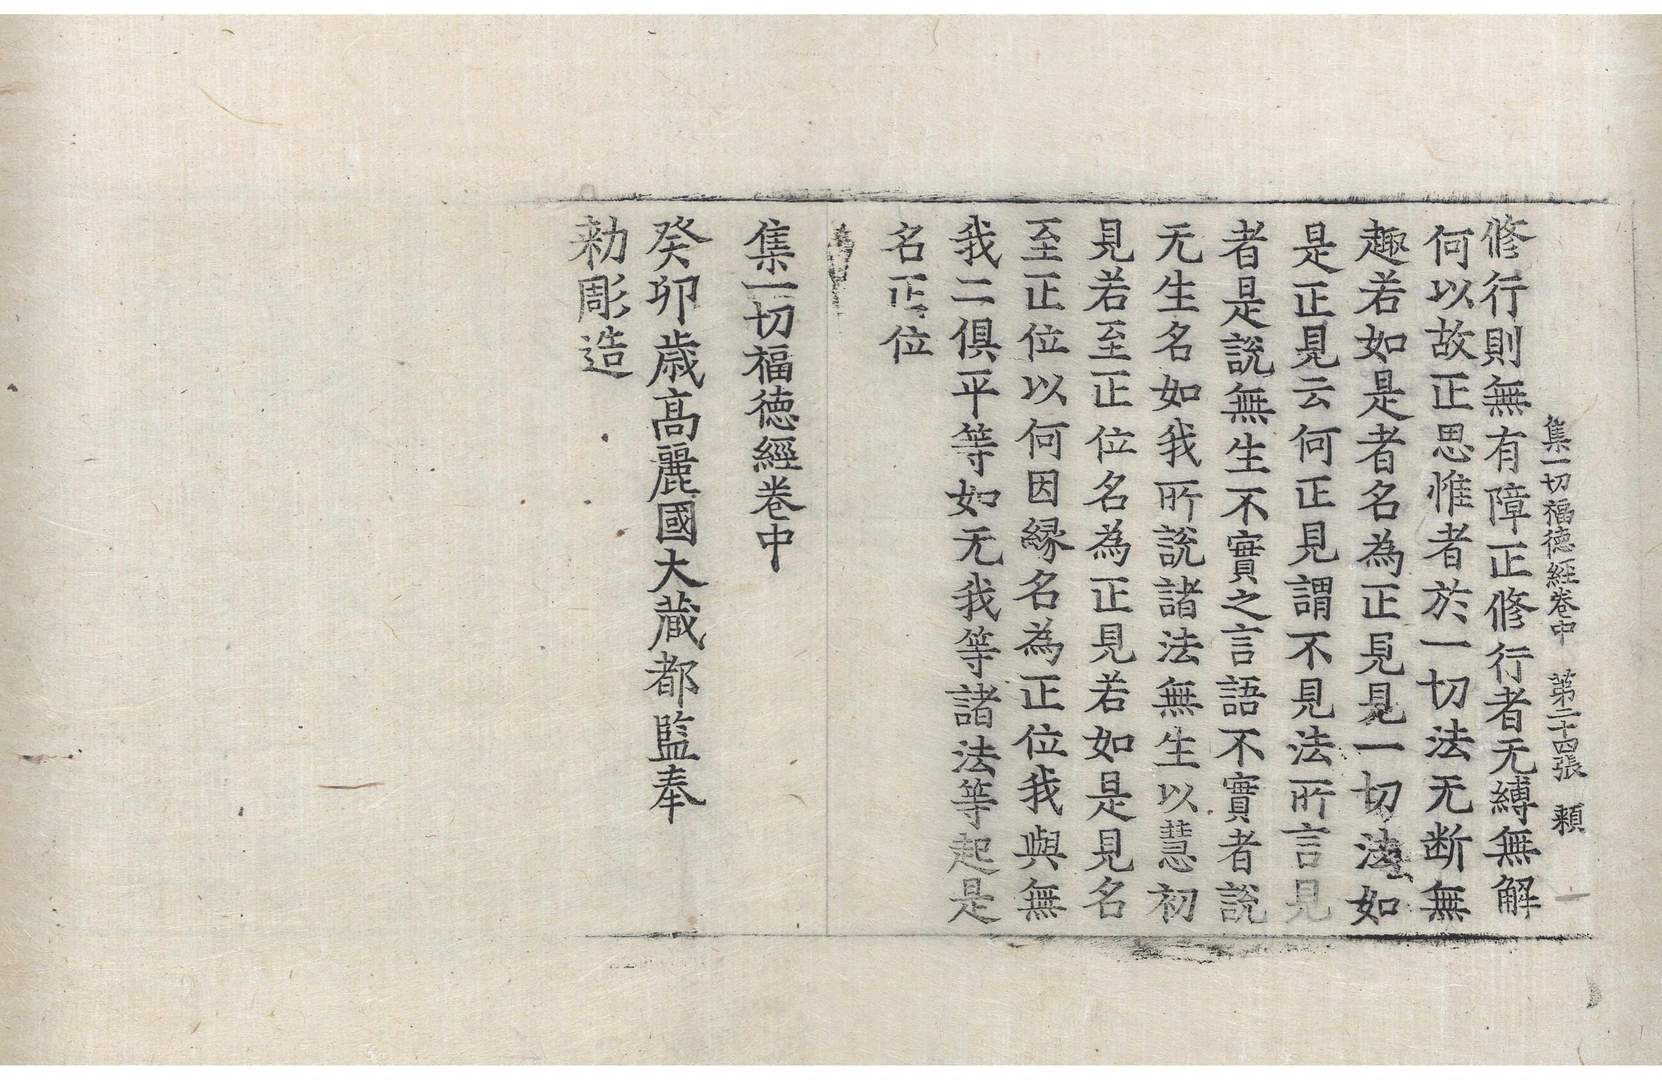 集一切福德経卷中　第二十四張　頼
修行則無有障正修行者无縛無解
何以故正思惟者於一切法无断無
趣若如是者名為正見見一切法如
是正見云何正見謂不見法所言見
者是說無生不實之言語不實者說
无生名如我所說諸法無生以慧初
見若至正位名為正見若如是見名
至正位以何因縁名為正位我與無
我二俱平等如无我等諸法等起是
名正位
集一切福德經卷中
癸卯歳髙麗國大蔵都監奉
勑彫造